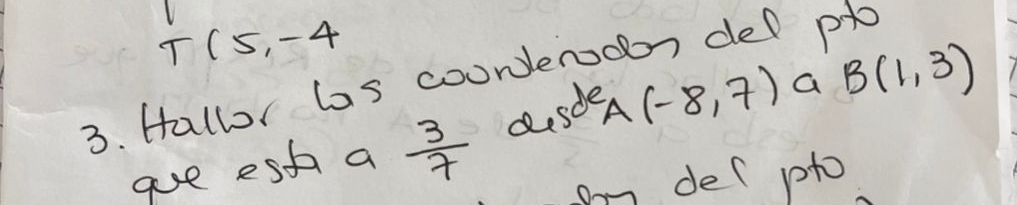 T(5,-4
3. Hallar las coordenadas del pto
que esta a 3/7 desde A(-8,7) a B(1,3)
del pto